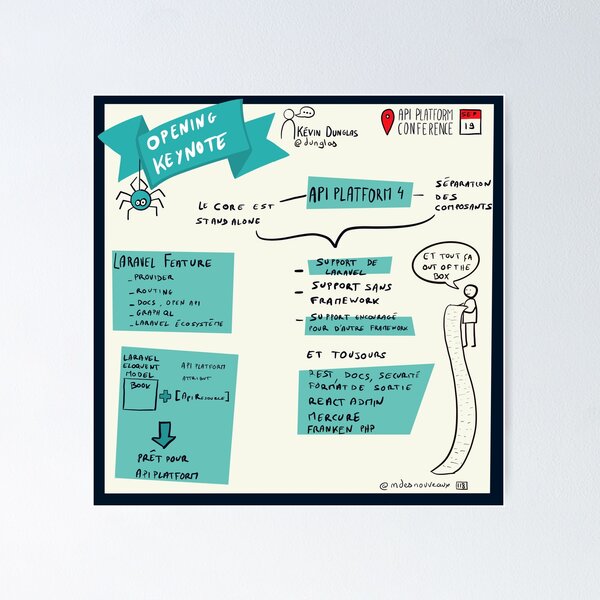 OPENING
KEYNOTE
KÉVIN DUNGLAS
@dunglas
API PLATFORM
CONFERENCE
SEP
19
LE CORE EST
STANDALONE
API PLATFORM 4
SÉPARATION
DES
COMPOSANTS
LARAVEL FEATURE
_ PROVIDER
_ ROUTING
_ DOCS, OPEN API
_ GRAPHQL
_ LARAVEL ÉCOSYSTÈME
– SUPPORT DE
LARAVEL
– SUPPORT SANS
FRAMEWORK
– SUPPORT ENCOURAGÉ
POUR D'AUTRE FRAMEWORK
ET TOUT ÇA
OUT OF THE
BOX
LARAVEL
ELOQUENT
MODEL
BOOK
API PLATFORM
ATTRIBUT
[ApiResource]
PRÊT POUR
API PLATFORM
ET TOUJOURS
REST DOCS, SECURITÉ
FORMAT DE SORTIE
REACT ADMIN
MERCURE
FRANKEN PHP
@mdesnouveaux